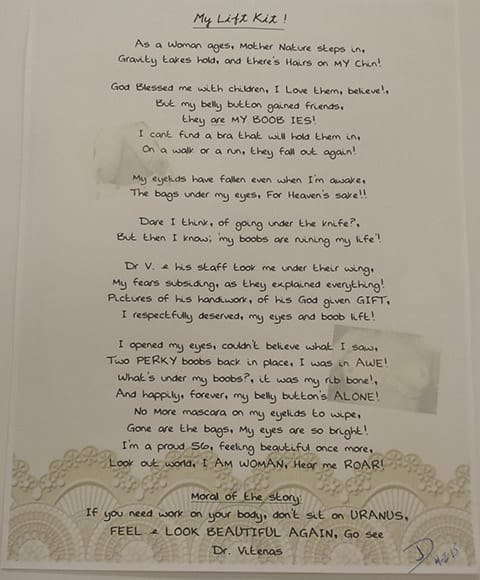 My Lift Kit!
As a Woman ages, Mother Nature steps in,
Gravity takes hold, and there's Hairs on MY Chin!
God Blessed me with children, I Love them, believe!,
But my belly button gained friends,
they are MY BOOB IES!
I cant find a bra that will hold them in,
On a walk or a run, they fall out again!
My eyelids have fallen even when I'm awake,
The bags under my eyes, For Heaven's sake!!
Dare I think, of going under the knife?,
But then I know; 'my boobs are ruining my life'!
Dr V. & his staff took me under their wing,
My fears subsiding, as they explained everything!
Pictures of his handiwork, of his God given GIFT,
I respectfully deserved, my eyes and boob lift!
I opened my eyes, couldn't believe what I saw,
Two PERKY boobs back in place, I was in AWE!
What's under my boobs?, it was my rib bone!,
And happily, forever, my belly button's ALONE!
No More mascara on my eyelids to wipe,
Gone are the bags, My eyes are so bright!
I'm a proud 56, feeling beautiful once more,
Look out world, I AM WOMAN, Hear me ROAR!
Moral of the story:
If you need work on your body, don't sit on URANUS,
FEEL & LOOK BEAUTIFUL AGAIN, Go see
Dr. Vitenas